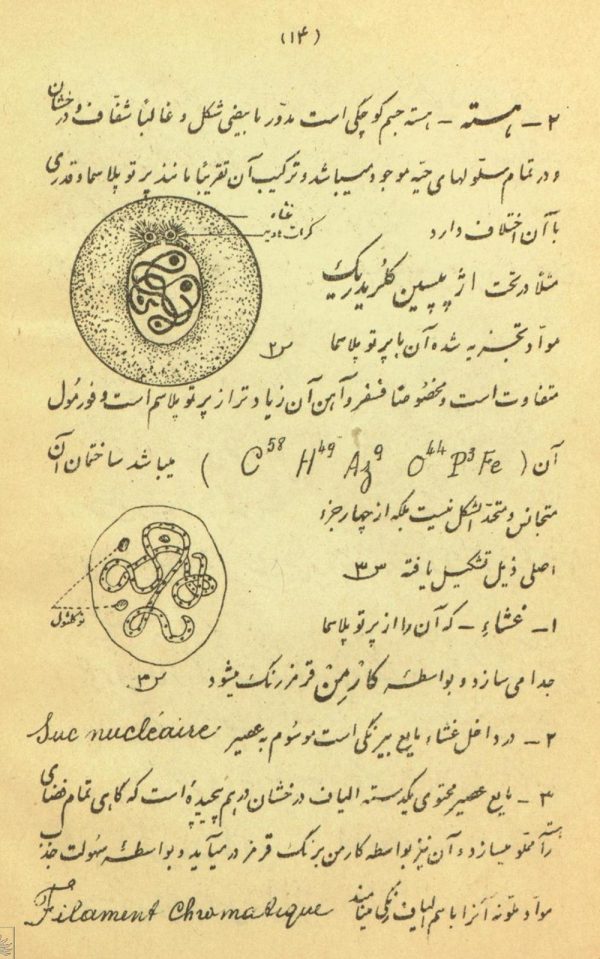 (۱۴)
۲ - هسته - هسته جسم کوچکی است مدوّر یا بیضی شکل و غالباً شفّاف و درخشان
و در تمام سلّولهای حیّه موجود میباشد و ترکیب آن تقریباً مانند پرتوپلاسما و قدری
با آن اختلاف دارد
غشاء
کرات هادیه
مثلاً در تحت اثر پپسین کلریدریک
موادّ تجزیه شده آن با پرتوپلاسما
ش۲
متفاوت است و مخصُوصاً فسفر و آهن آن زیادتر از پرتوپلاسم است و فورمُول
آن ( C⁵⁸ H⁴⁹ Az⁹ O⁴⁴ P³ Fe ) میباشد ساختمان آن
متجانس و متحدّ الشکل نیست بلکه از چهار جزء
اصلی ذیل تشکیل یافته ش۳
نوکلئول
۱ - غشاءِ - که آن را از پرتوپلاسما
جدا می سازد و بواسطه کارمِن قرمز رنگ میشود
ش۳
۲ - در داخل غشاء مایع بیرنگی است موسُوم به عصیر Suc nucléaire
۳ - مایع عصیر محتوی یکدسته الیاف درخشان درهم پیچیدهٔ است که گاهی تمام فضای
را مملو میسازد و آن نیز بواسطه کارمن برنگ قرمز در میآید و بواسطه سهُولت جذب
موادّ ملوّنه آنرا باسم الیاف رنگی مینامند Filament chromatique